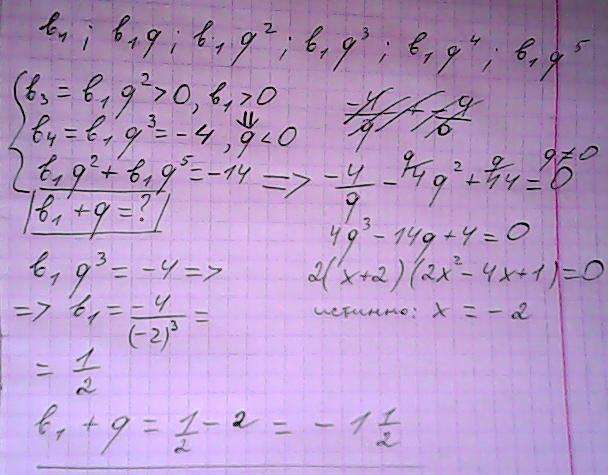 b₁ ; b₁q ; b₁q² ; b₁q³ ; b₁q⁴ ; b₁q⁵
b₃ = b₁q² > 0, b₁ > 0
b₄ = b₁q³ = -4, q < 0
b₁q² + b₁q⁵ = -14 => -4/q - 4q² + 14 = 0
q ≠ 0
b₁ + q = ?
4q³ - 14q + 4 = 0
2(x+2)(2x² - 4x + 1) = 0
истинно: x = -2
b₁q³ = -4 =>
=> b₁ = -4/(-2)³ =
= 1/2
b₁ + q = 1/2 - 2 = -1 1/2